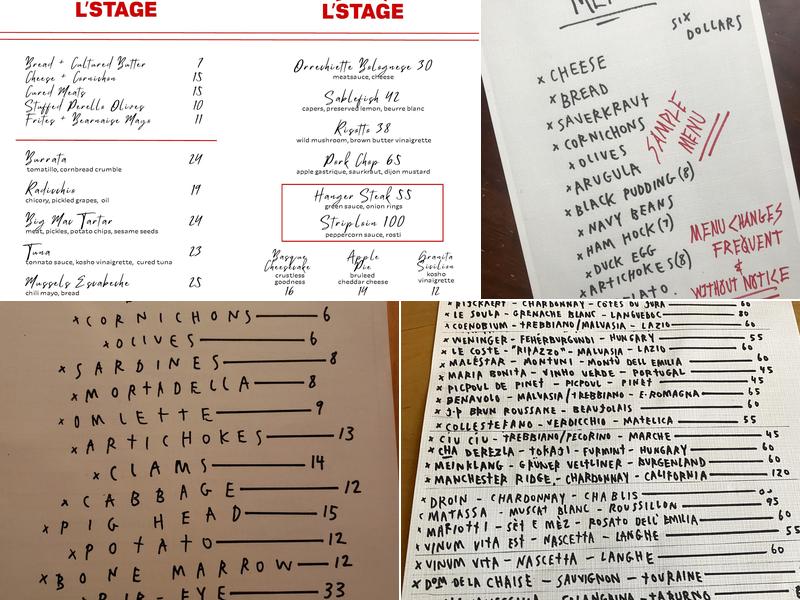 L'STAGE
Bread + Cultured Butter 7
Cheese + Cornichon 15
Cured Meats 15
Stuffed Perello Olives 10
Frites + Bearnaise Mayo 11
Burrata 24
tomatillo, cornbread crumble
Radicchio 19
chicory, pickled grapes, oil
Big Mac Tartar 24
meat, pickles, potato chips, sesame seeds
Tuna 23
tonnato sauce, kosho vinaigrette, cured tuna
Mussels Escabeche 25
chili mayo, bread
L'STAGE
Orrechiette Bolognese 30
meatsauce, cheese
Sablefish 42
capers, preserved lemon, beurre blanc
Risotto 38
wild mushroom, brown butter vinaigrette
Pork Chop 65
apple gastrique, saurkraut, dijon mustard
Hanger Steak 55
green sauce, onion rings
Striploin 100
peppercorn sauce, rosti
Basque
Cheesecake
crustless
goodness
16
Apple
Pie
bruleed
cheddar cheese
14
Granita
Sicilian
kosho
vinaigrette
12
SIX
DOLLARS
x CHEESE
x BREAD
x SAVERKRAUT
x CORNICHONS
x OLIVES
x ARUGULA
x BLACK PUDDING (8)
x NAVY BEANS
x HAM HOCK (7)
x DUCK EGG
x ARTICHOKES (8)
SAMPLE
MENU
MENU CHANGES
FREQUENT
&
WITHOUT NOTICE
x CORNICHONS 6
x OLIVES 6
x SARDINES 8
x MORTADELLA 8
x OMLETTE 9
x ARTICHOKES 13
x CLAMS 14
x CABBAGE 12
x PIG HEAD 15
x POTATO 12
x BONE MARROW 12
x RIB-EYE 33
CHARDONNAY - CÔTES DU JURA 60
x LE SOULA - GRENACHE BLANC - LANGUEDOC 80
x COENOBIUM - TREBBIANO/MALVASIA - LAZIO 60
x WENINGER - FEHÉRBURGUNDI - HUNGARY 55
x LE COSTE - "RIPAZZO" - MALVASIA - LAZIO 60
x MALÈSTAR - MONTUNI - MONTÙ DELL EMILIA 60
x MARIA BONITA - VINHO VERDE - PORTUGAL 45
x PICPOUL DE PINET - PICPOUL - PINET 45
x BENAVOLO - MALVASIA/TREBBIANO - E. ROMAGNA 65
x J-P BRUN ROUSSANE - BEAUJOLAIS 60
x COLLESTEFANO - VERDICCHIO - MATELICA 55
x CIU CIU - TREBBIANO/PECORINO - MARCHE 45
x CHA DEREZLA - TOKAJI - FURMINT - HUNGARY 60
x MEINKLANG - GRÜNER VELTLINER - BURGENLAND 60
x MANCHESTER RIDGE - CHARDONNAY - CALIFORNIA 120
x DROIN - CHARDONNAY - CHABLIS
x MATASSA - MUSCAT BLANC - ROUSSILLON 95
x MARIOTTI - SÈT E MÈZ - ROSATO DELL' EMILIA 60
x VINUM VITA EST - NASCETTA - LANGHE 55
x VINUM VITA - NASCETTA - LANGHE 60
x DOM DE LA CHAISE - SAUVIGNON - TOURAINE